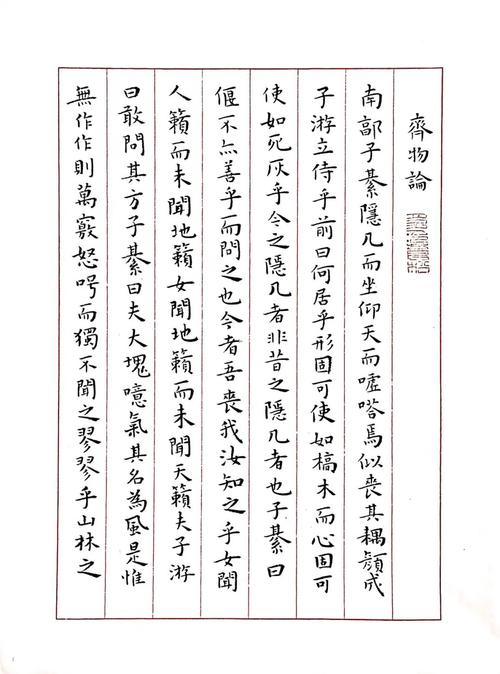 齊物論
南郭子綦隱几而坐仰天而噓嗒焉似喪其耦顏成
子游立侍乎前曰何居乎形固可使如槁木而心固可
使如死灰乎今之隱几者非昔之隱几者也子綦曰
偃不亦善乎而問之也今者吾喪我汝知之乎女聞
人籟而未聞地籟女聞地籟而未聞天籟夫子游
曰敢問其方子綦曰夫大塊噫氣其名為風是惟
無作作則萬竅怒呺而獨不聞之翏翏乎山林之